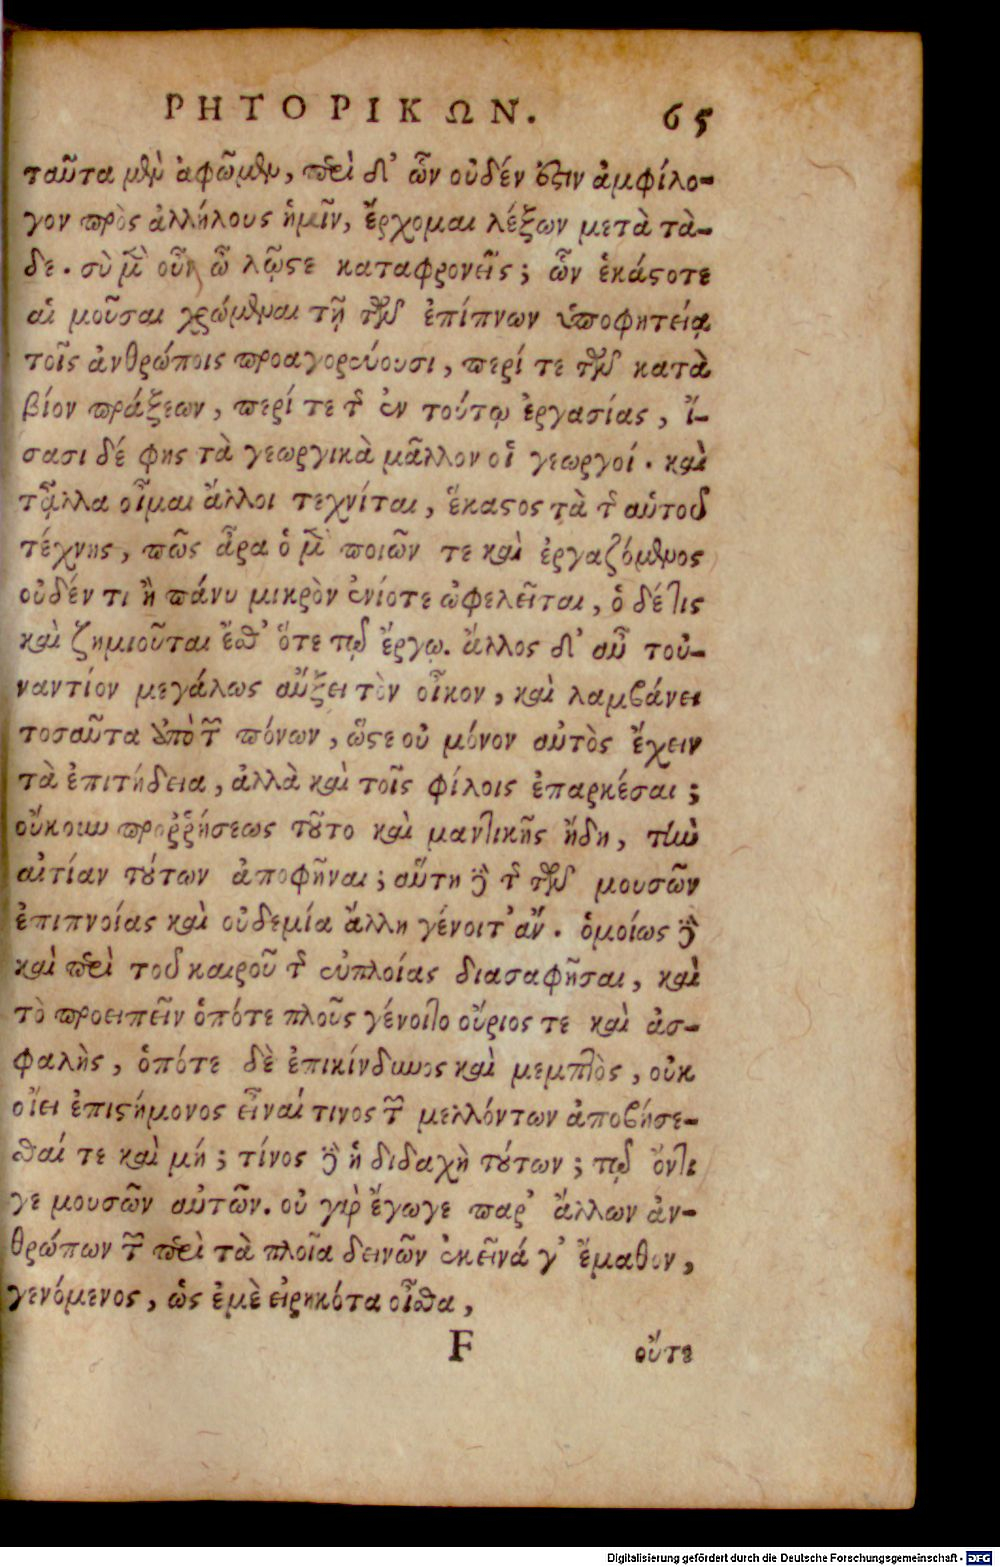 ΡΗΤΟΡΙΚΩΝ. 65
ταῦτα μὲν ἀφῶμεν, περὶ δ' ὧν οὐδέν ἐστιν ἀμφίλο-
γον πρὸς ἀλλήλους ἡμῖν, ἔρχομαι λέξων μετὰ τὰ-
δε. σὺ μὲν οὖν ὦ λῷστε καταφρονεῖς; ὧν ἑκάστοτε
αἱ μοῦσαι χρώμεναι τῇ τῶν ἐπίπνων ὑποφητείᾳ
τοῖς ἀνθρώποις προαγορεύουσι, περί τε τῶν κατὰ
βίον πράξεων, περί τε τῆς ἐν τούτῳ ἐργασίας, ἴ-
σασι δέ φῃς τὰ γεωργικὰ μᾶλλον οἱ γεωργοί. καὶ
τἄλλα οἶμαι ἄλλοι τεχνίται, ἕκαστος τὰ τῆς αὑτοῦ
τέχνης, πῶς ἆρα ὁ μὲν ποιῶν τε καὶ ἐργαζόμενος
οὐδέν τι ἢ πάνυ μικρὸν ἐνίοτε ὠφελεῖται, ὁ δέ τις
καὶ ζημιοῦται ἔσθ' ὅτε τῷ ἔργῳ. ἄλλος δ' αὖ τοὐ-
ναντίον μεγάλως αὔξει τὸν οἶκον, καὶ λαμβάνει
τοσαῦτα ὑπὸ τῶν πόνων, ὥστε οὐ μόνον αὐτὸς ἔχειν
τὰ ἐπιτήδεια, ἀλλὰ καὶ τοῖς φίλοις ἐπαρκέσαι;
οὔκουν προῤῥήσεως τοῦτο καὶ μαντικῆς ἤδη, τὴν
αἰτίαν τούτων ἀποφῆναι; αὕτη δὲ τῆς τῶν μουσῶν
ἐπιπνοίας καὶ οὐδεμία ἄλλη γένοιτ' ἄν. ὁμοίως δὲ
καὶ περὶ τοῦ καιροῦ τῆς εὐπλοίας διασαφῆσαι, καὶ
τὸ προειπεῖν ὁπότε πλοῦς γένοιτο οὔριος τε καὶ ἀσ-
φαλὴς, ὁπότε δὲ ἐπικίνδυνος καὶ μεμπτὸς, οὐκ
οἴει ἐπιστήμονος εἶναί τινος τῶν μελλόντων ἀποβήσε-
σθαί τε καὶ μή; τίνος δὲ ἡ διδαχὴ τούτων; τῷ ὄντι
γε μουσῶν αὐτῶν. οὐ γὰρ ἔγωγε παρ' ἄλλων ἀν-
θρώπων τῶν περὶ τὰ πλοῖα δεινῶν ἐκεῖνά γ' ἔμαθον,
γενόμενος, ὡς ἐμὲ εἰρηκότα οἶσθα,
F οὔτε
Digitalisierung gefördert durch die Deutsche Forschungsgemeinschaft - DFG